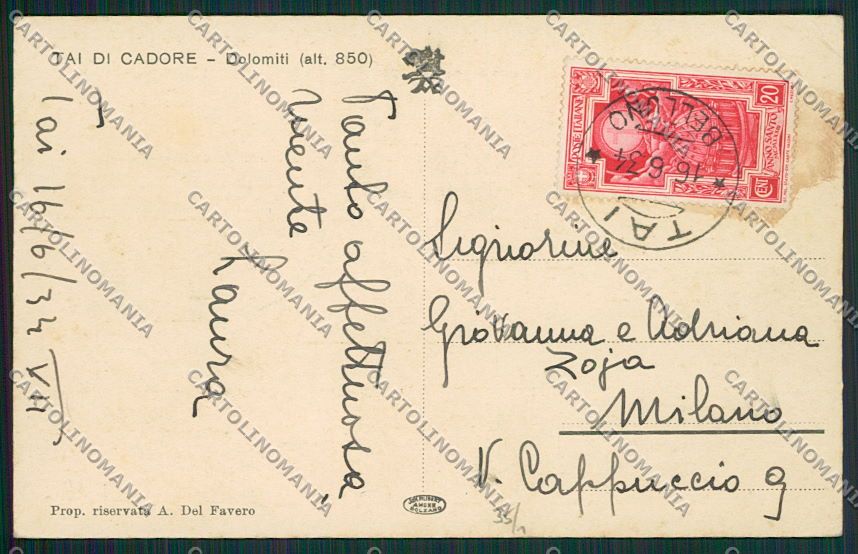 TAI DI CADORE – Dolomiti (alt. 850)
Tai 16/6/34 VII
Tanto affettuosa
mente
Laura
Prop. riservata A. Del Favero
20
CENT
POSTE ITALIANE
ANNO SANTO
TAI
BELLUNO
16.6.34
Signorine
Giovanna e Adriana
Zoja
Milano
V. Cappuccio 9
AMONN
BOLZANO
CARTOLINOMANIA